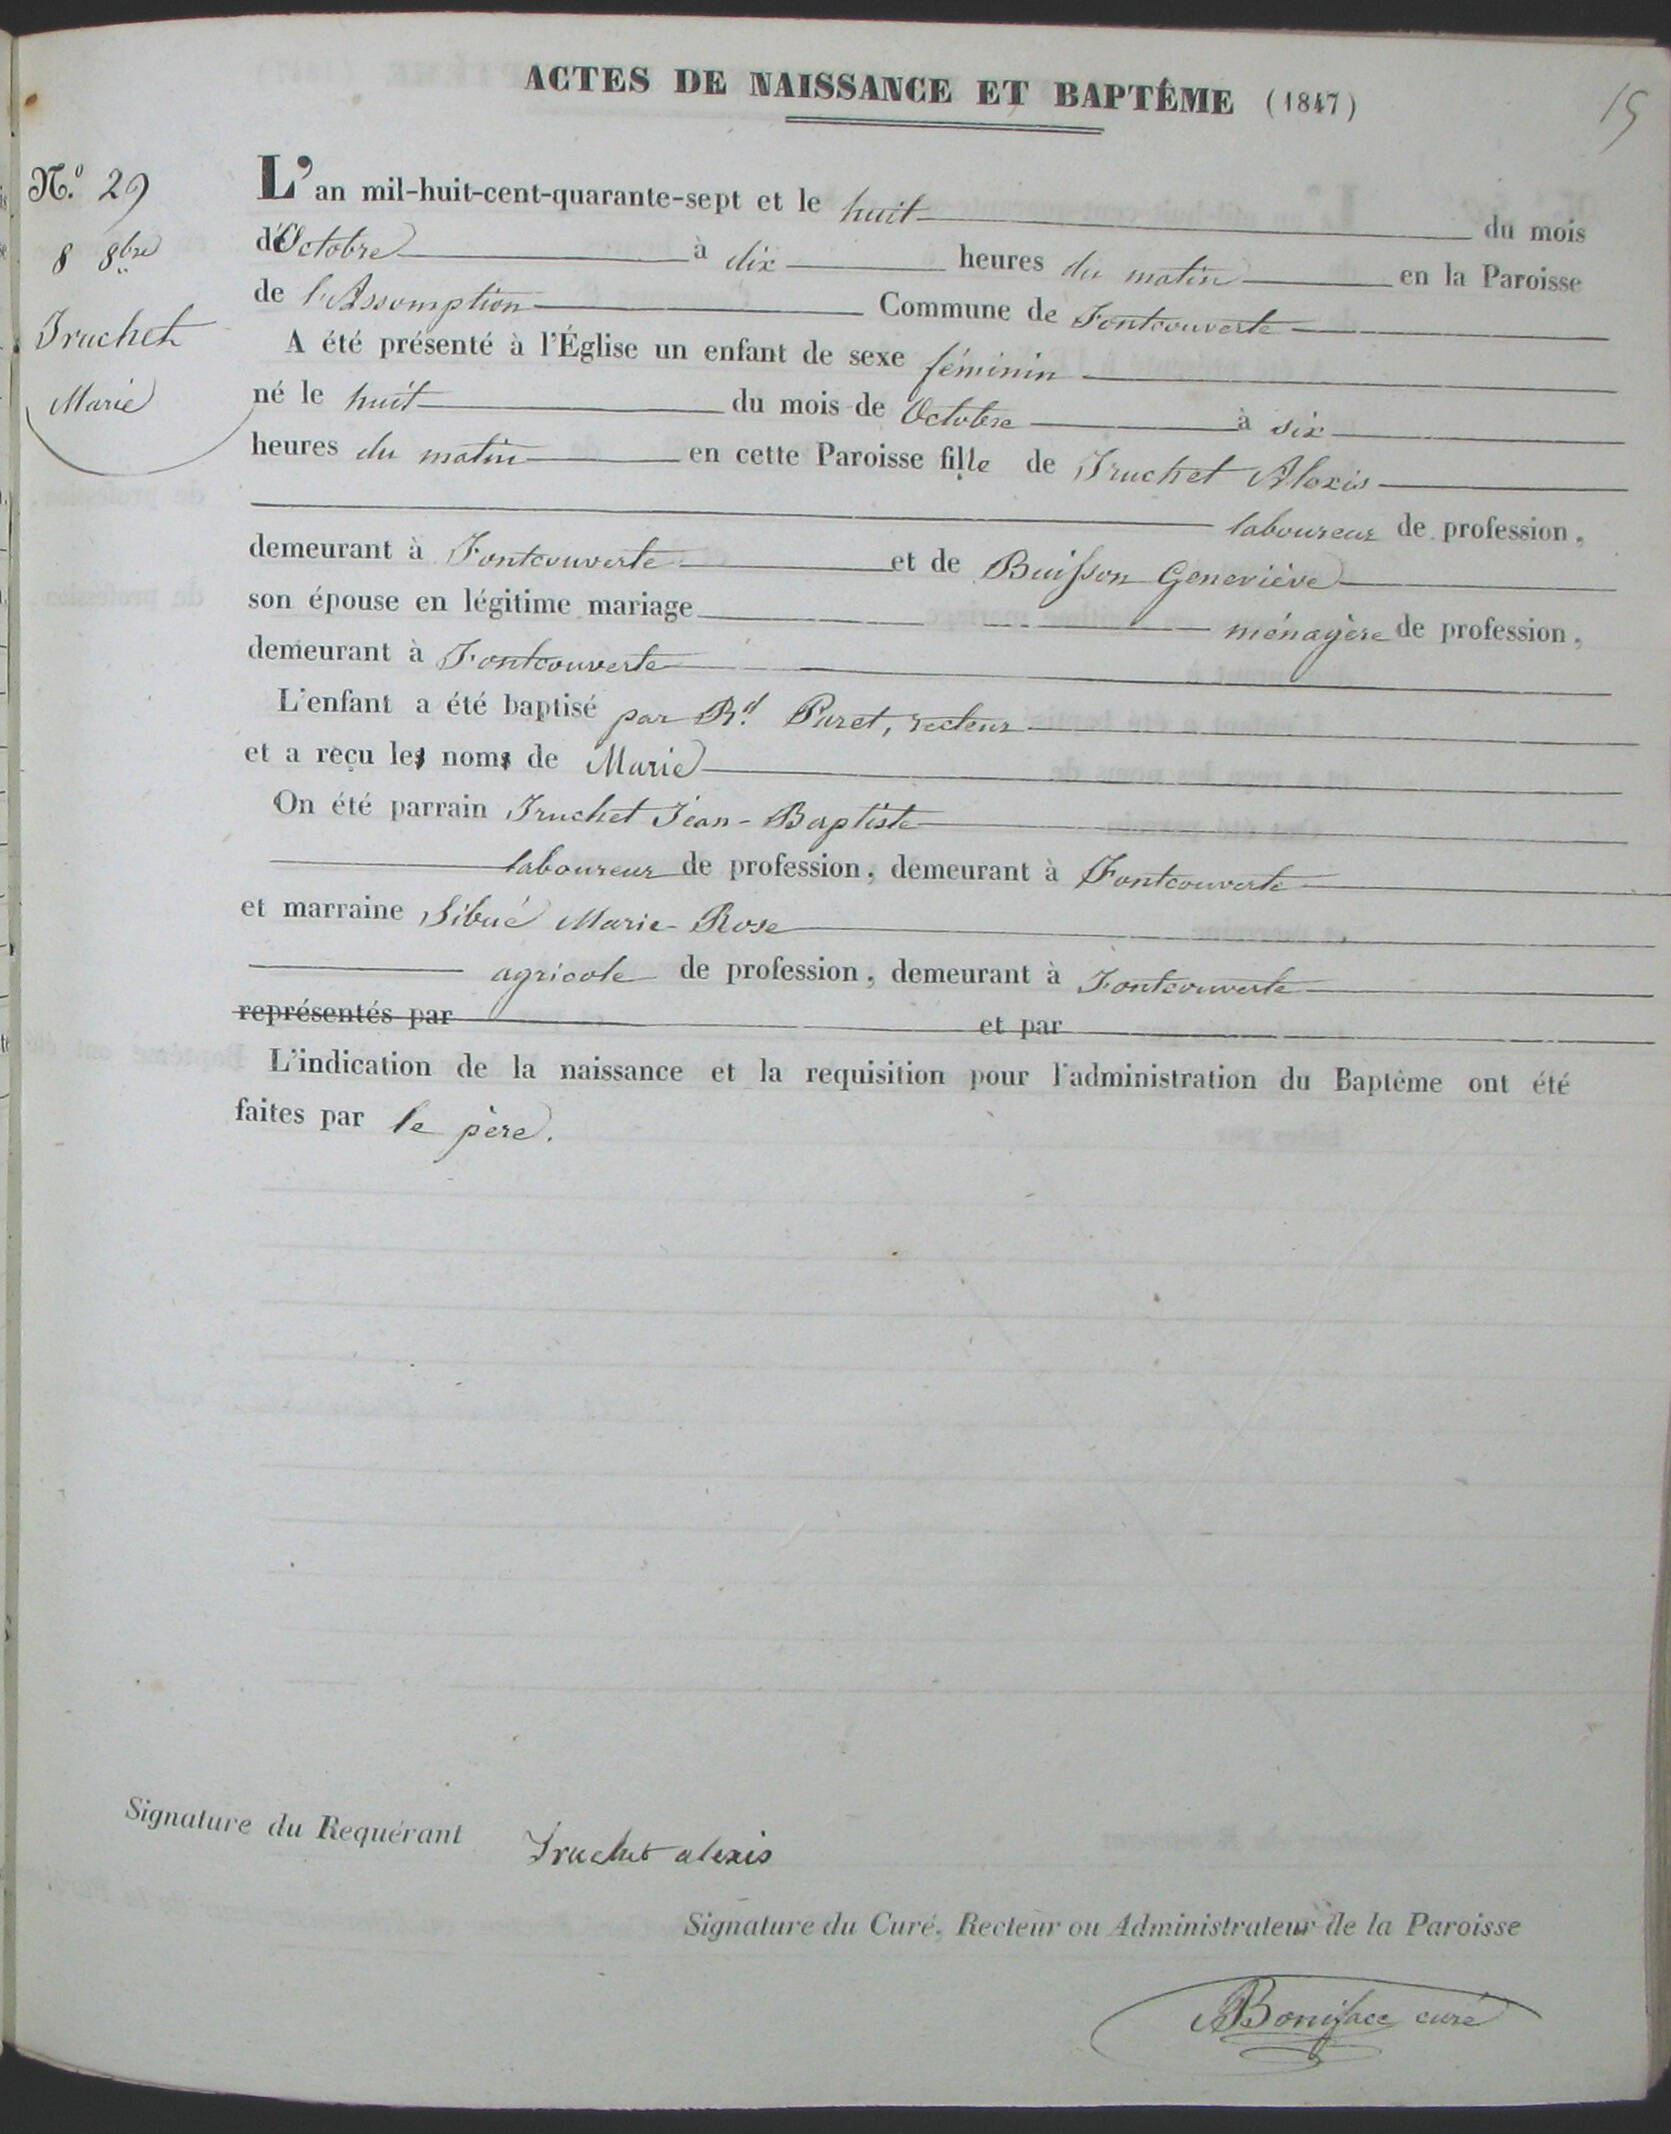 ACTES DE NAISSANCE ET BAPTÊME (1847)
15
N.º 29
8 8bre
Truchet
Marie
L'an mil-huit-cent-quarante-sept et le huit du mois
d'Octobre à dix heures du matin en la Paroisse
de l'Assomption Commune de Fontcouverte
A été présenté à l'Église un enfant de sexe féminin
né le huit du mois de Octobre à six
heures du matin en cette Paroisse fille de Truchet Alexis
laboureur de profession,
demeurant à Fontcouverte et de Buisson Geneviève
son épouse en légitime mariage ménagère de profession,
demeurant à Fontcouverte
L'enfant a été baptisé par Rd. Puret, recteur
et a reçu les noms de Marie
On été parrain Truchet Jean-Baptiste
laboureur de profession, demeurant à Fontcouverte
et marraine Sibué Marie-Rose
agricole de profession, demeurant à Fontcouverte
représentés par et par
L'indication de la naissance et la requisition pour l'administration du Baptême ont été
faites par le père.
Signature du Requérant Truchet alexis
Signature du Curé, Recteur ou Administrateur de la Paroisse
Boniface curé